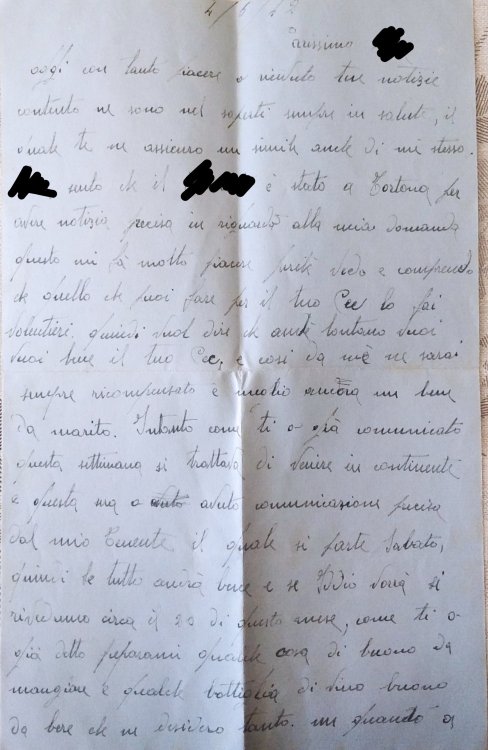 4/6/42
Carissimo
oggi con tanto piacere o ricevuto tue notizie
contento ne sono nel saperti sempre in salute, il
quale te ne assicuro un simile anche di me stesso.
sento che il è stato a Tortona per
avere notizia precisa in riguardo alla mia domanda
questo mi fà molto piacere perchè vedo e comprendo
che quello che puoi fare per il tuo Cec lo fai
volentieri, quindi vuol dire che anche lontano vuoi
vuoi bene il tuo Cec, e così da mè ne sarai
sempre ricompensato e meglio ancora un bene
da marito. Intanto come ti o già comunicato
questa settimana si trattava di venire in continente
e questa sera o avuto comunicazione precisa
dal mio Tenente il quale si parte Sabato,
quindi se tutto andrà bene e se Iddio vorrà si
rivedremo circa il 20 di questo mese, come ti o
già detto preparami qualche cosa di buono da
mangiare e qualche bottiglia di vino buono
da bere che ne desidero tanto. un quando a